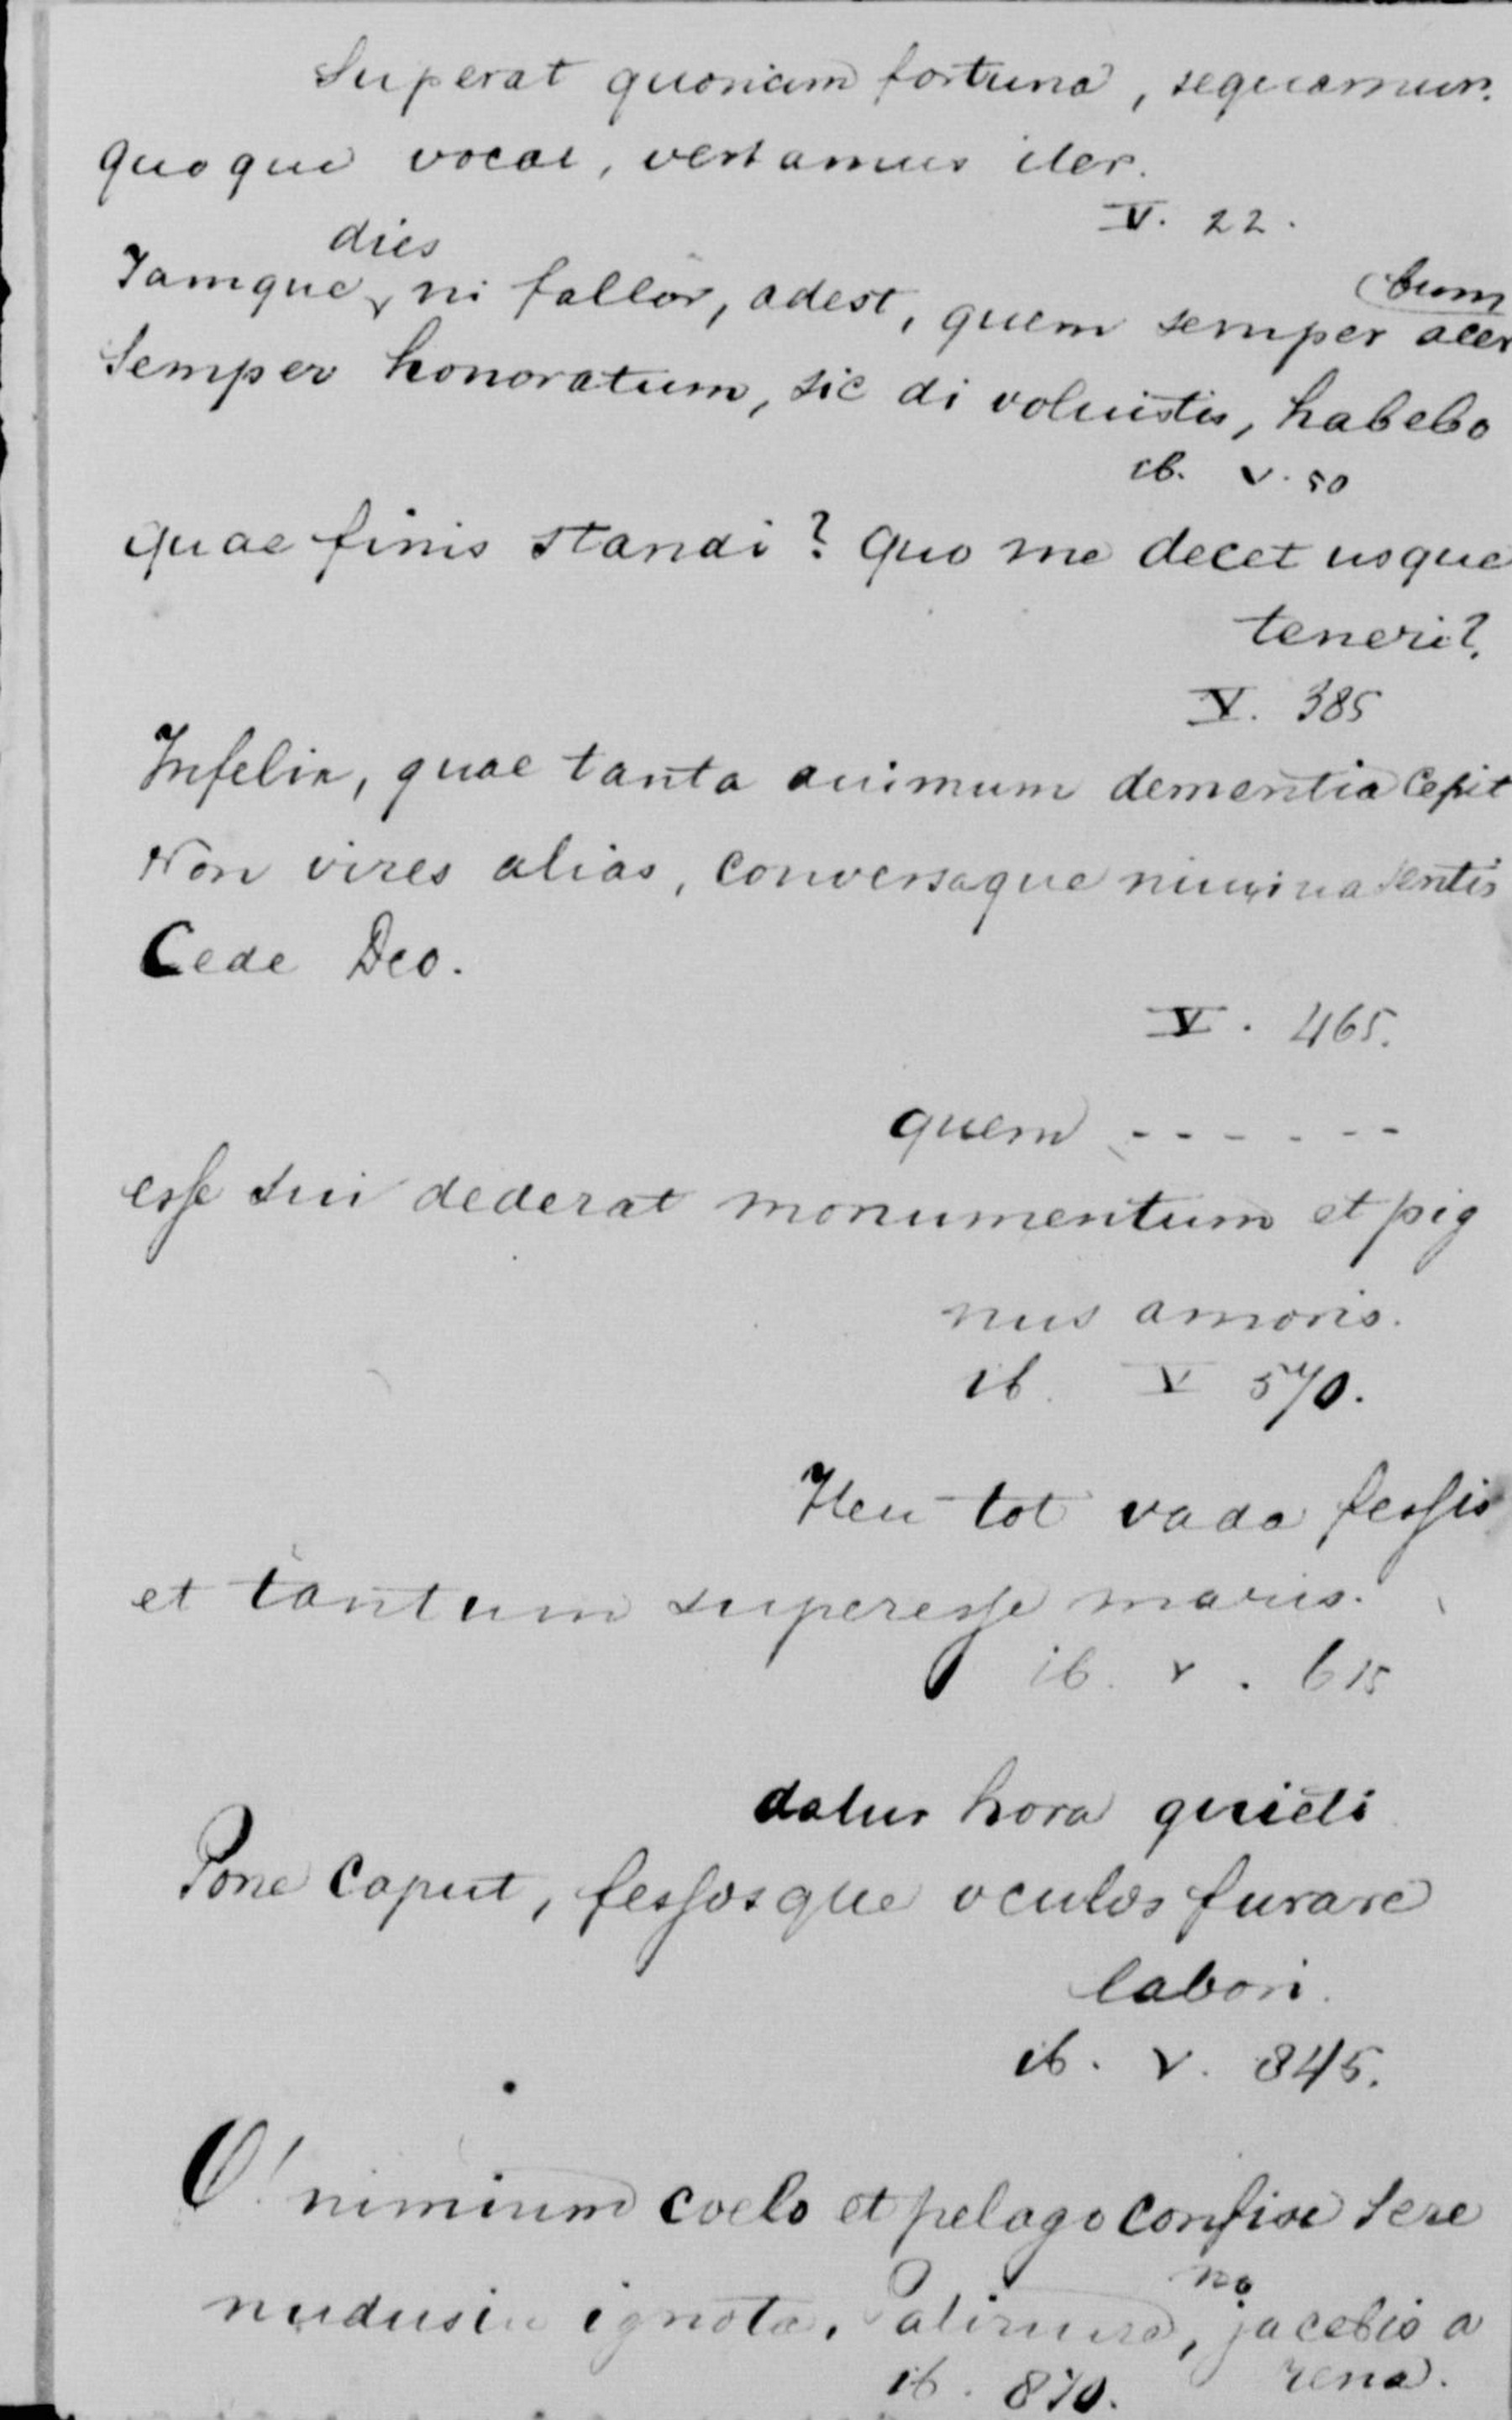 Superat quoniam fortuna, sequamur.
quoque vocat, vertamus iter.
V. 22.
dies
Iamque, ni fallor, adest, quem semper acer
(bum
Semper honoratum, sic di voluistis, habebo
ib. v. 50
quae finis standi? Quo me decet usque
teneri?
V. 385
Infelix, quae tanta animum dementia cepit
Non vires alias, conversaque numina sentis
Cede Deo.
V. 465.
quem - - - - - -
esse sui dederat monumentum et pig
nus amoris.
ib. V 570.
Heu tot vada fessis
et tantum superesse maris.
ib. v. 615
datur hora quieti
Pone caput, fessosque oculos furare
labori.
ib. v. 845.
O! nimium coelo et pelago confise sere
no
nudus in ignota, Palinure, jacebis a
rena.
ib. 870.